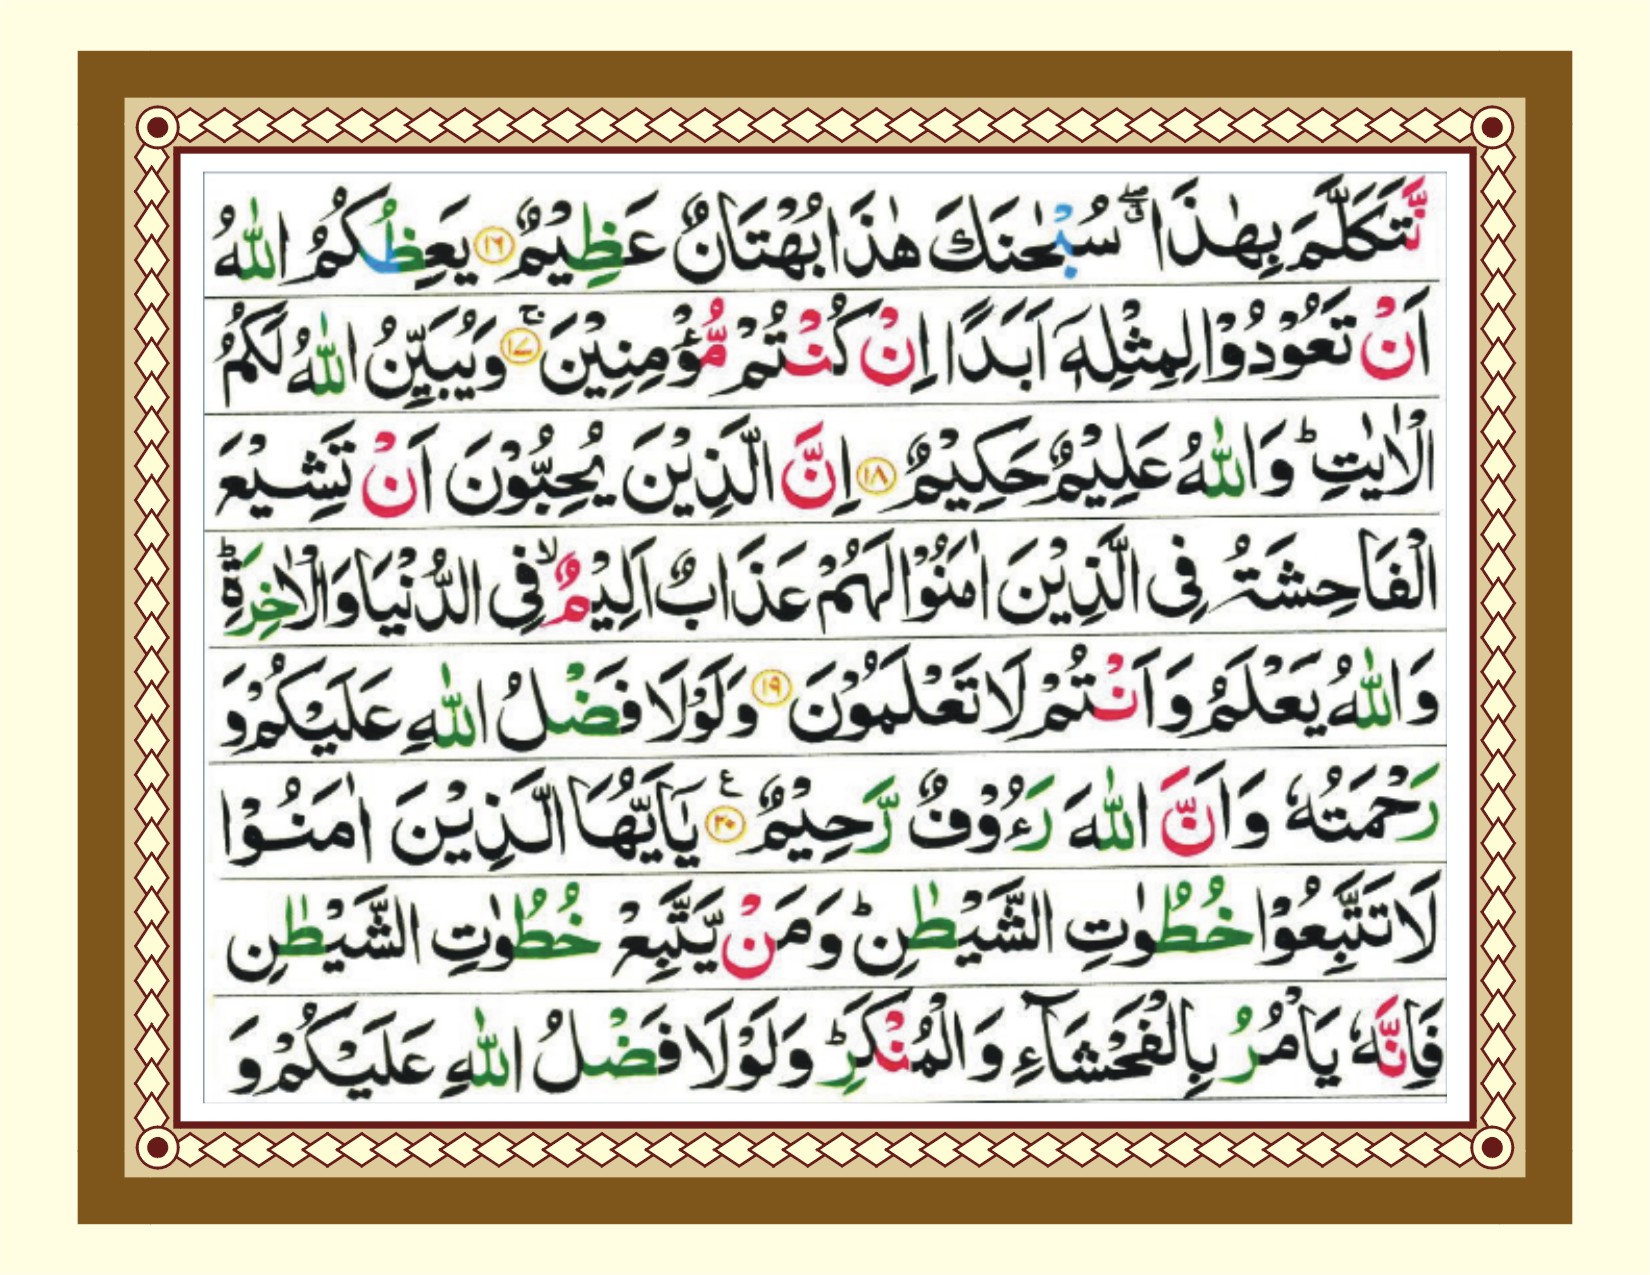 نَّتَكَلَّمَ بِهٰذَا ۖۗ سُبْحٰنَكَ هٰذَا بُهْتَانٌ عَظِيْمٌ ﴿۱۶﴾ يَعِظُكُمُ اللّٰهُ
اَنْ تَعُوْدُوْا لِمِثْلِهٖۤ اَبَدًا اِنْ كُنْتُمْ مُّؤْمِنِيْنَ ﴿۱۷﴾ۚ وَيُبَيِّنُ اللّٰهُ لَكُمُ
الْاٰيٰتِ ؕ وَاللّٰهُ عَلِيْمٌ حَكِيْمٌ ﴿۱۸﴾ اِنَّ الَّذِيْنَ يُحِبُّوْنَ اَنْ تَشِيْعَ
الْفَاحِشَةُ فِى الَّذِيْنَ اٰمَنُوْا لَهُمْ عَذَابٌ اَلِيْمٌ ۙ فِى الدُّنْيَا وَالْاٰخِرَةِ ؕ
وَاللّٰهُ يَعْلَمُ وَاَنْتُمْ لَا تَعْلَمُوْنَ ﴿۱۹﴾ وَلَوْلَا فَضْلُ اللّٰهِ عَلَيْكُمْ وَ
رَحْمَتُهٗ وَاَنَّ اللّٰهَ رَءُوْفٌ رَّحِيْمٌ ﴿۲۰﴾ ع يٰۤاَيُّهَا الَّذِيْنَ اٰمَنُوْا
لَا تَتَّبِعُوْا خُطُوٰتِ الشَّيْطٰنِ ؕ وَمَنْ يَّتَّبِعْ خُطُوٰتِ الشَّيْطٰنِ
فَاِنَّهٗ يَاْمُرُ بِالْفَحْشَآءِ وَالْمُنْكَرِ ؕ وَلَوْلَا فَضْلُ اللّٰهِ عَلَيْكُمْ وَ